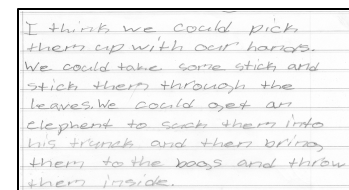 I think we could pick
them up with our hands.
We could take some stick and
stick them through the
leaves. We could get an
elephent to suck them into
his trunck and then bring
them to the bags and throw
them inside.